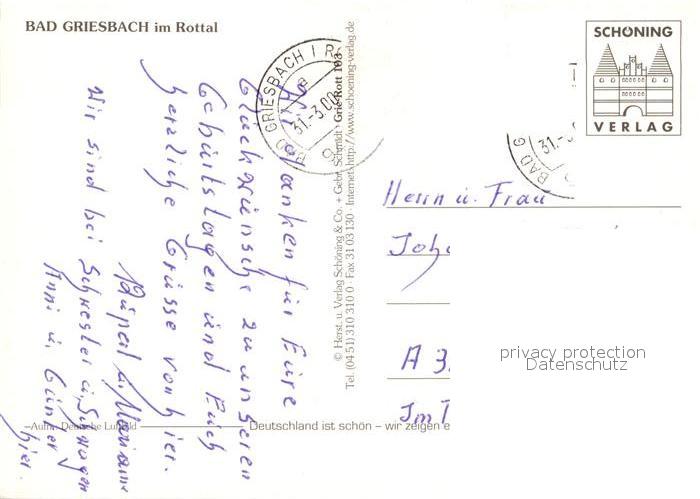 BAD GRIESBACH im Rottal
Wir danken für Eure
Glückwünsche zu unseren
Gebürtstagen und Euch
herzliche Grüsse von hier.
Marianne
Wir sind bei Schwester u. Schwager
Anni u. Günter
hier.
BAD GRIESBACH I R
31.-3.00
© Herst. u. Verlag Schöning & Co. + Gebr. Schmidt · Grie Rott 103
Tel. (04 51) 310 310 0 · Fax 31 03 130 · Internet http://www.schoening-verlag.de
SCHÖNING
VERLAG
BAD G
31.-3
Herrn u. Frau
Joh
A 3
Im
privacy protection
Datenschutz
Deutschland ist schön – wir zeigen e